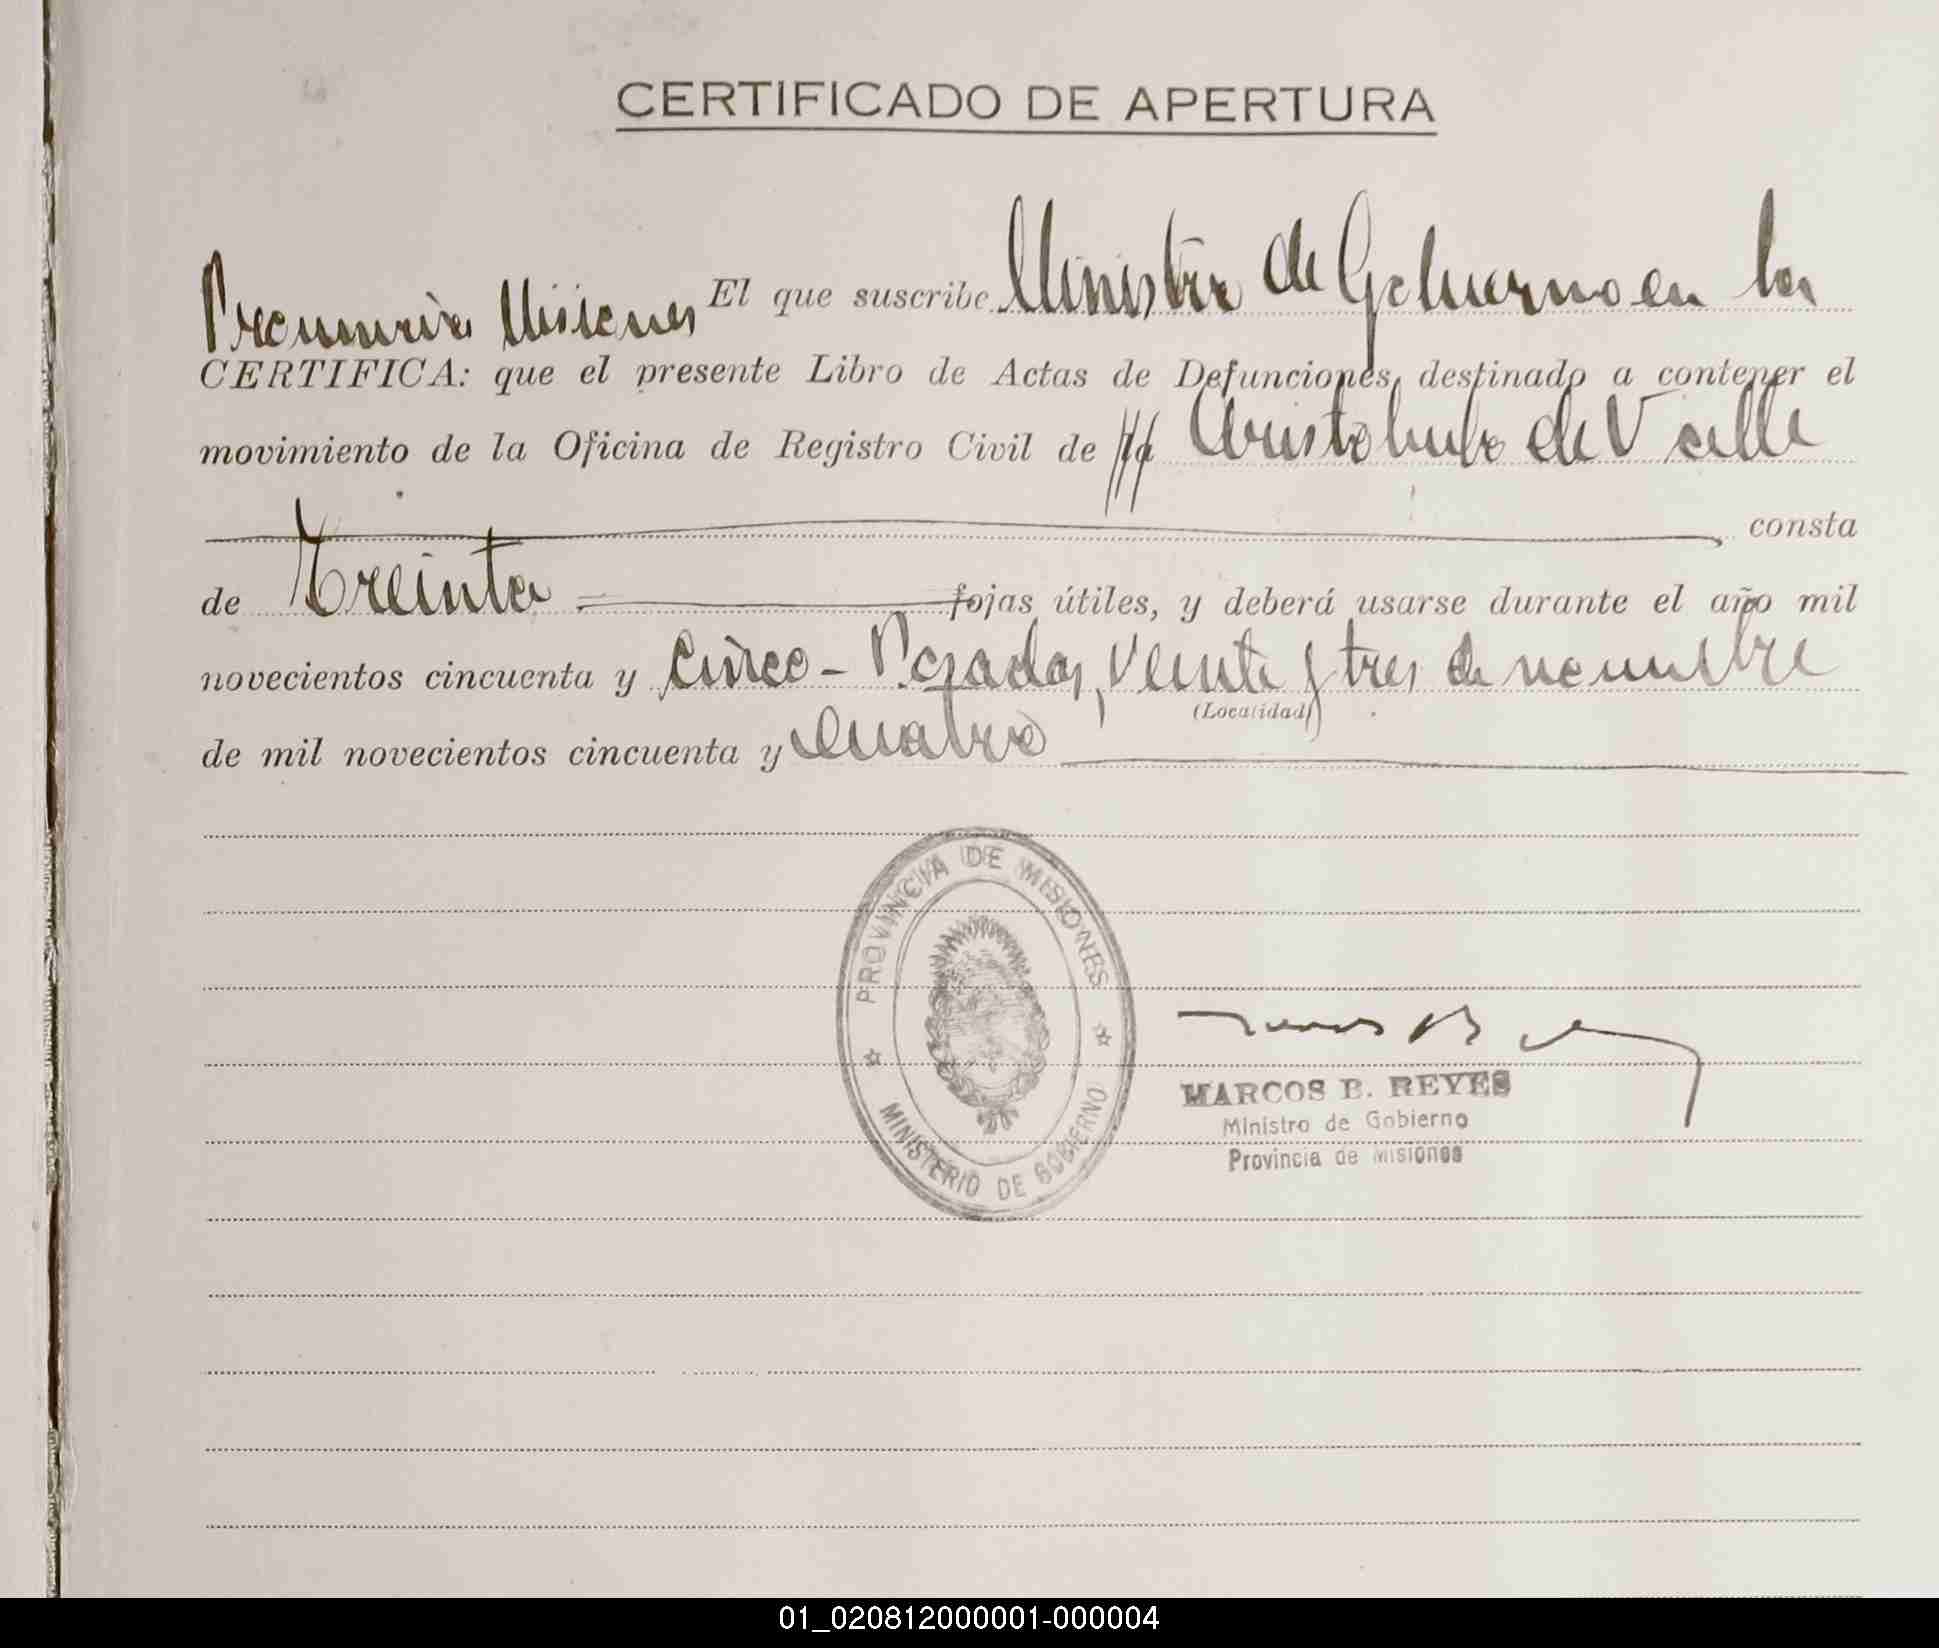 CERTIFICADO DE APERTURA
El que suscribe Ministro de Gobierno en la
Provincia Misiones
CERTIFICA: que el presente Libro de Actas de Defunciones, destinado a contener el
movimiento de la Oficina de Registro Civil de Aristobulo del Valle
consta
de Treinta fojas útiles, y deberá usarse durante el año mil
novecientos cincuenta y cinco - Posadas, veinte y tres de noviembre
(Localidad)
de mil novecientos cincuenta y cuatro
PROVINCIA DE MISIONES
MINISTERIO DE GOBIERNO
MARCOS B. REYES
Ministro de Gobierno
Provincia de Misiones
01_020812000001-000004